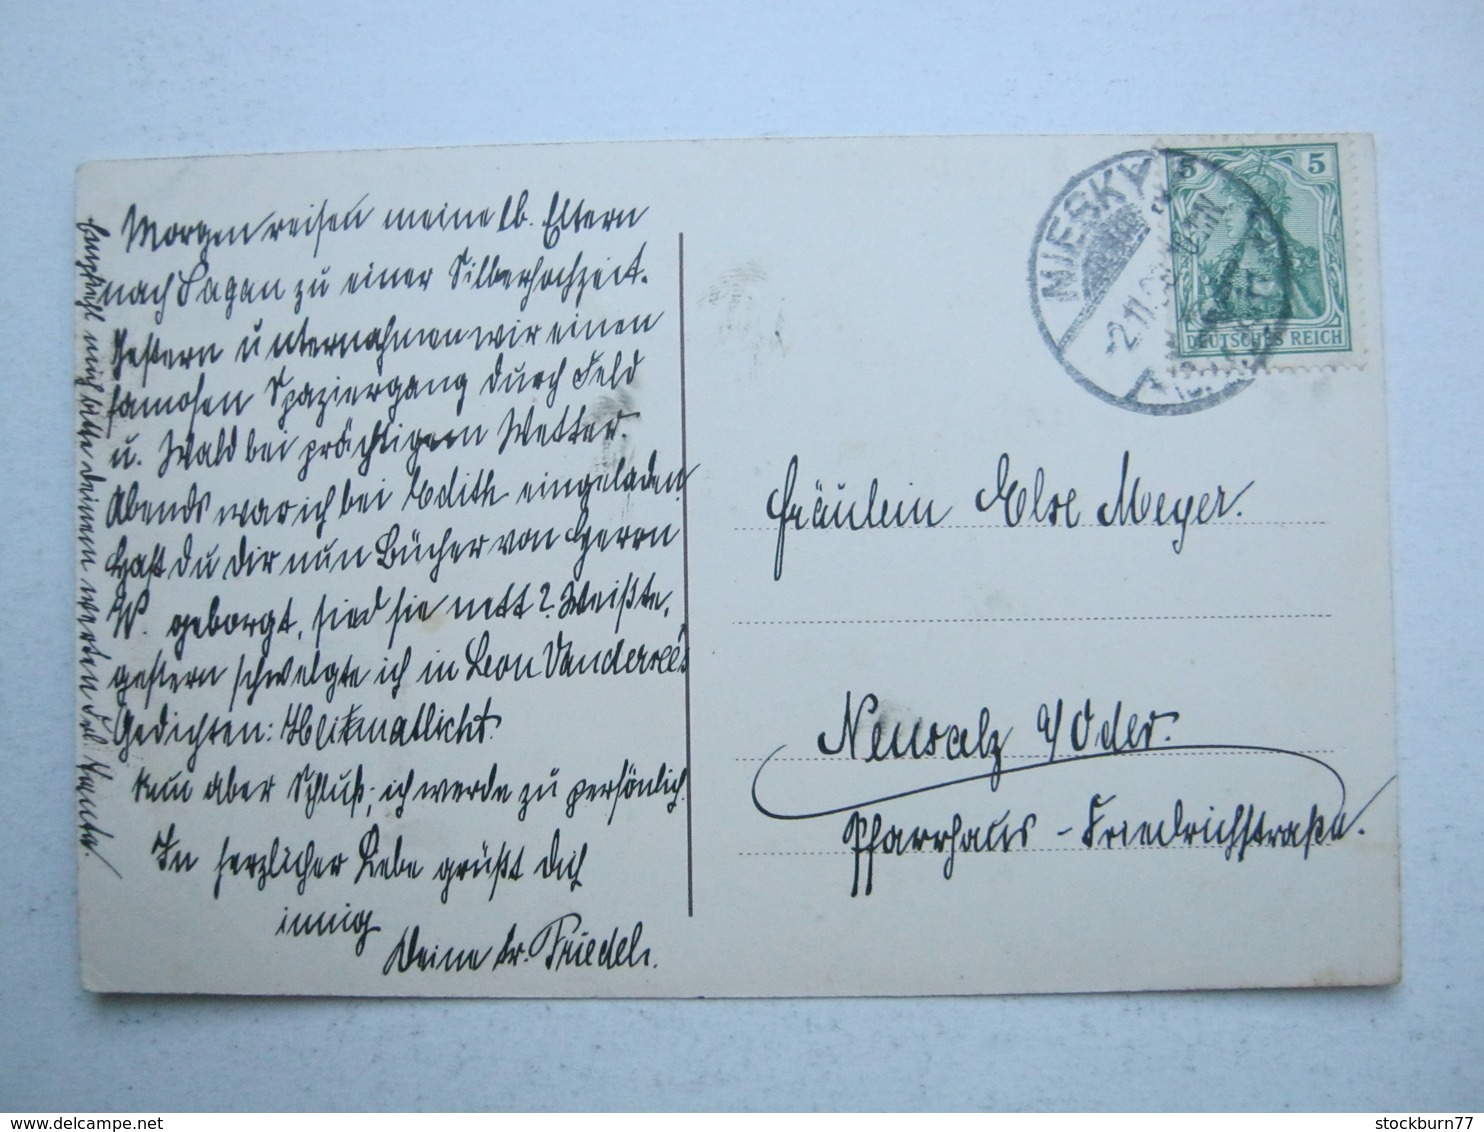 Morgen reisen meine lb. Eltern
nach Sagan zu einer Silberhochzeit.
Gestern unternahmen wir einen
famosen Spaziergang durch Feld
u. Wald bei prächtigem Wetter.
Abends war ich bei Edith eingeladen.
Hast du dir nun Bücher von Herrn
W. geborgt, sind sie nett? Weißte,
gestern schwelgte ich in Leon Vandersee's
Gedichten: Heimatlicht.
Nun aber Schluß; ich werde zu persönlich.
In herzlicher Liebe grüßt dich
innig
Deine tr. Friedel.
Empfiehl mich bitte deinem werten Frl. Tante.
NIESKY
2.11.
5 5
DEUTSCHES REICH
Fräulein Else Meyer.
Neusalz a/Oder.
Pfarrhaus - Friedrichstraße.
stockburn77